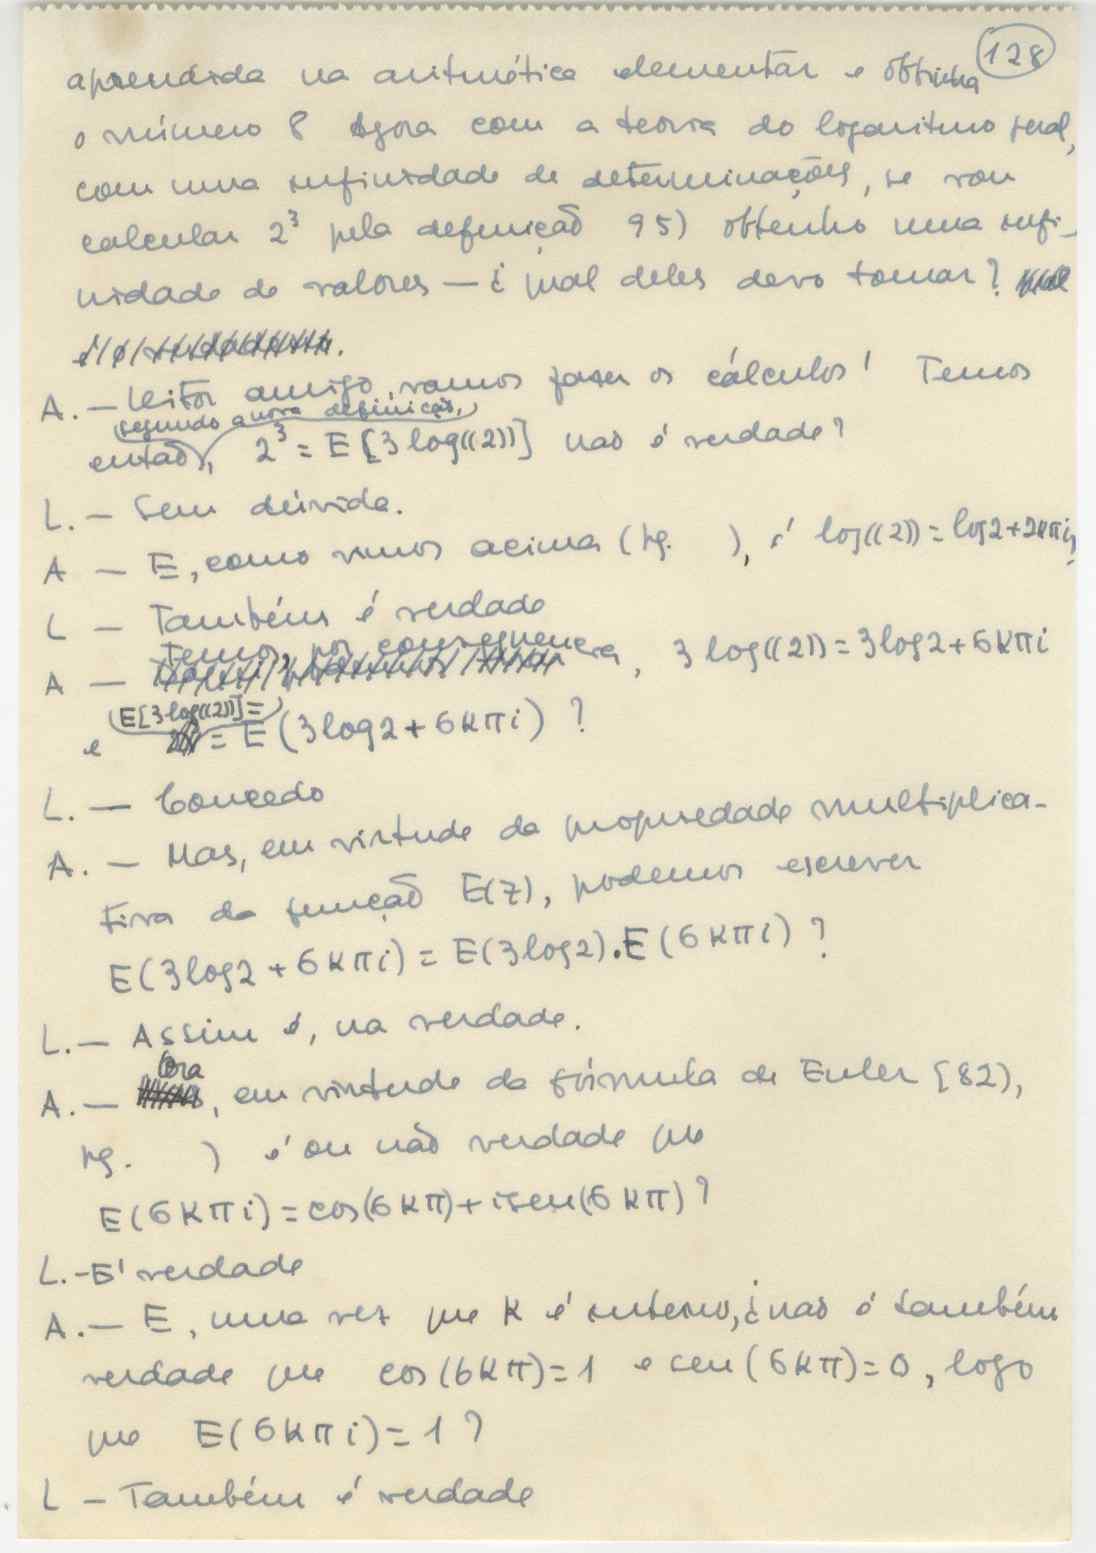 128
aprendida na aritmética elementar e obtinha
o número 8 Agora com a teoria do logaritmo geral,
com uma infinidade de determinações, se vou
calcular 2³ pela definição 95) obtenho uma infi-
nidade de valores — ¿ qual deles devo tomar?
A. — Leitor amigo, vamos fazer os cálculos! Temos
segundo a nova definição,
então, 2³ = E[3 log((2))] não é verdade?
L. — Sem dúvida.
A — E, como vimos acima (pg.   ), é log((2)) = log2+2kπi,
L — Também é verdade
A — Temos, por consequência, 3 log((2)) = 3log2+6kπi
E[3log((2))] =
e = E(3log2 + 6kπi) ?
L. — Concedo
A. — Mas, em virtude da propriedade multiplica-
tiva da função E(z), podemos escrever
E(3log2 + 6kπi) = E(3log2).E(6kπi) ?
L. — Assim é, na verdade.
A. — Ora, em virtude da fórmula de Euler [82),
pg.   ) é ou não verdade que
E(6kπi) = cos(6kπ)+isen(6kπ) ?
L. - E' verdade
A. — E, uma vez que k é inteiro, ¿não é também
verdade que cos(6kπ)=1 e sen(6kπ)=0, logo
que E(6kπi)=1 ?
L — Também é verdade